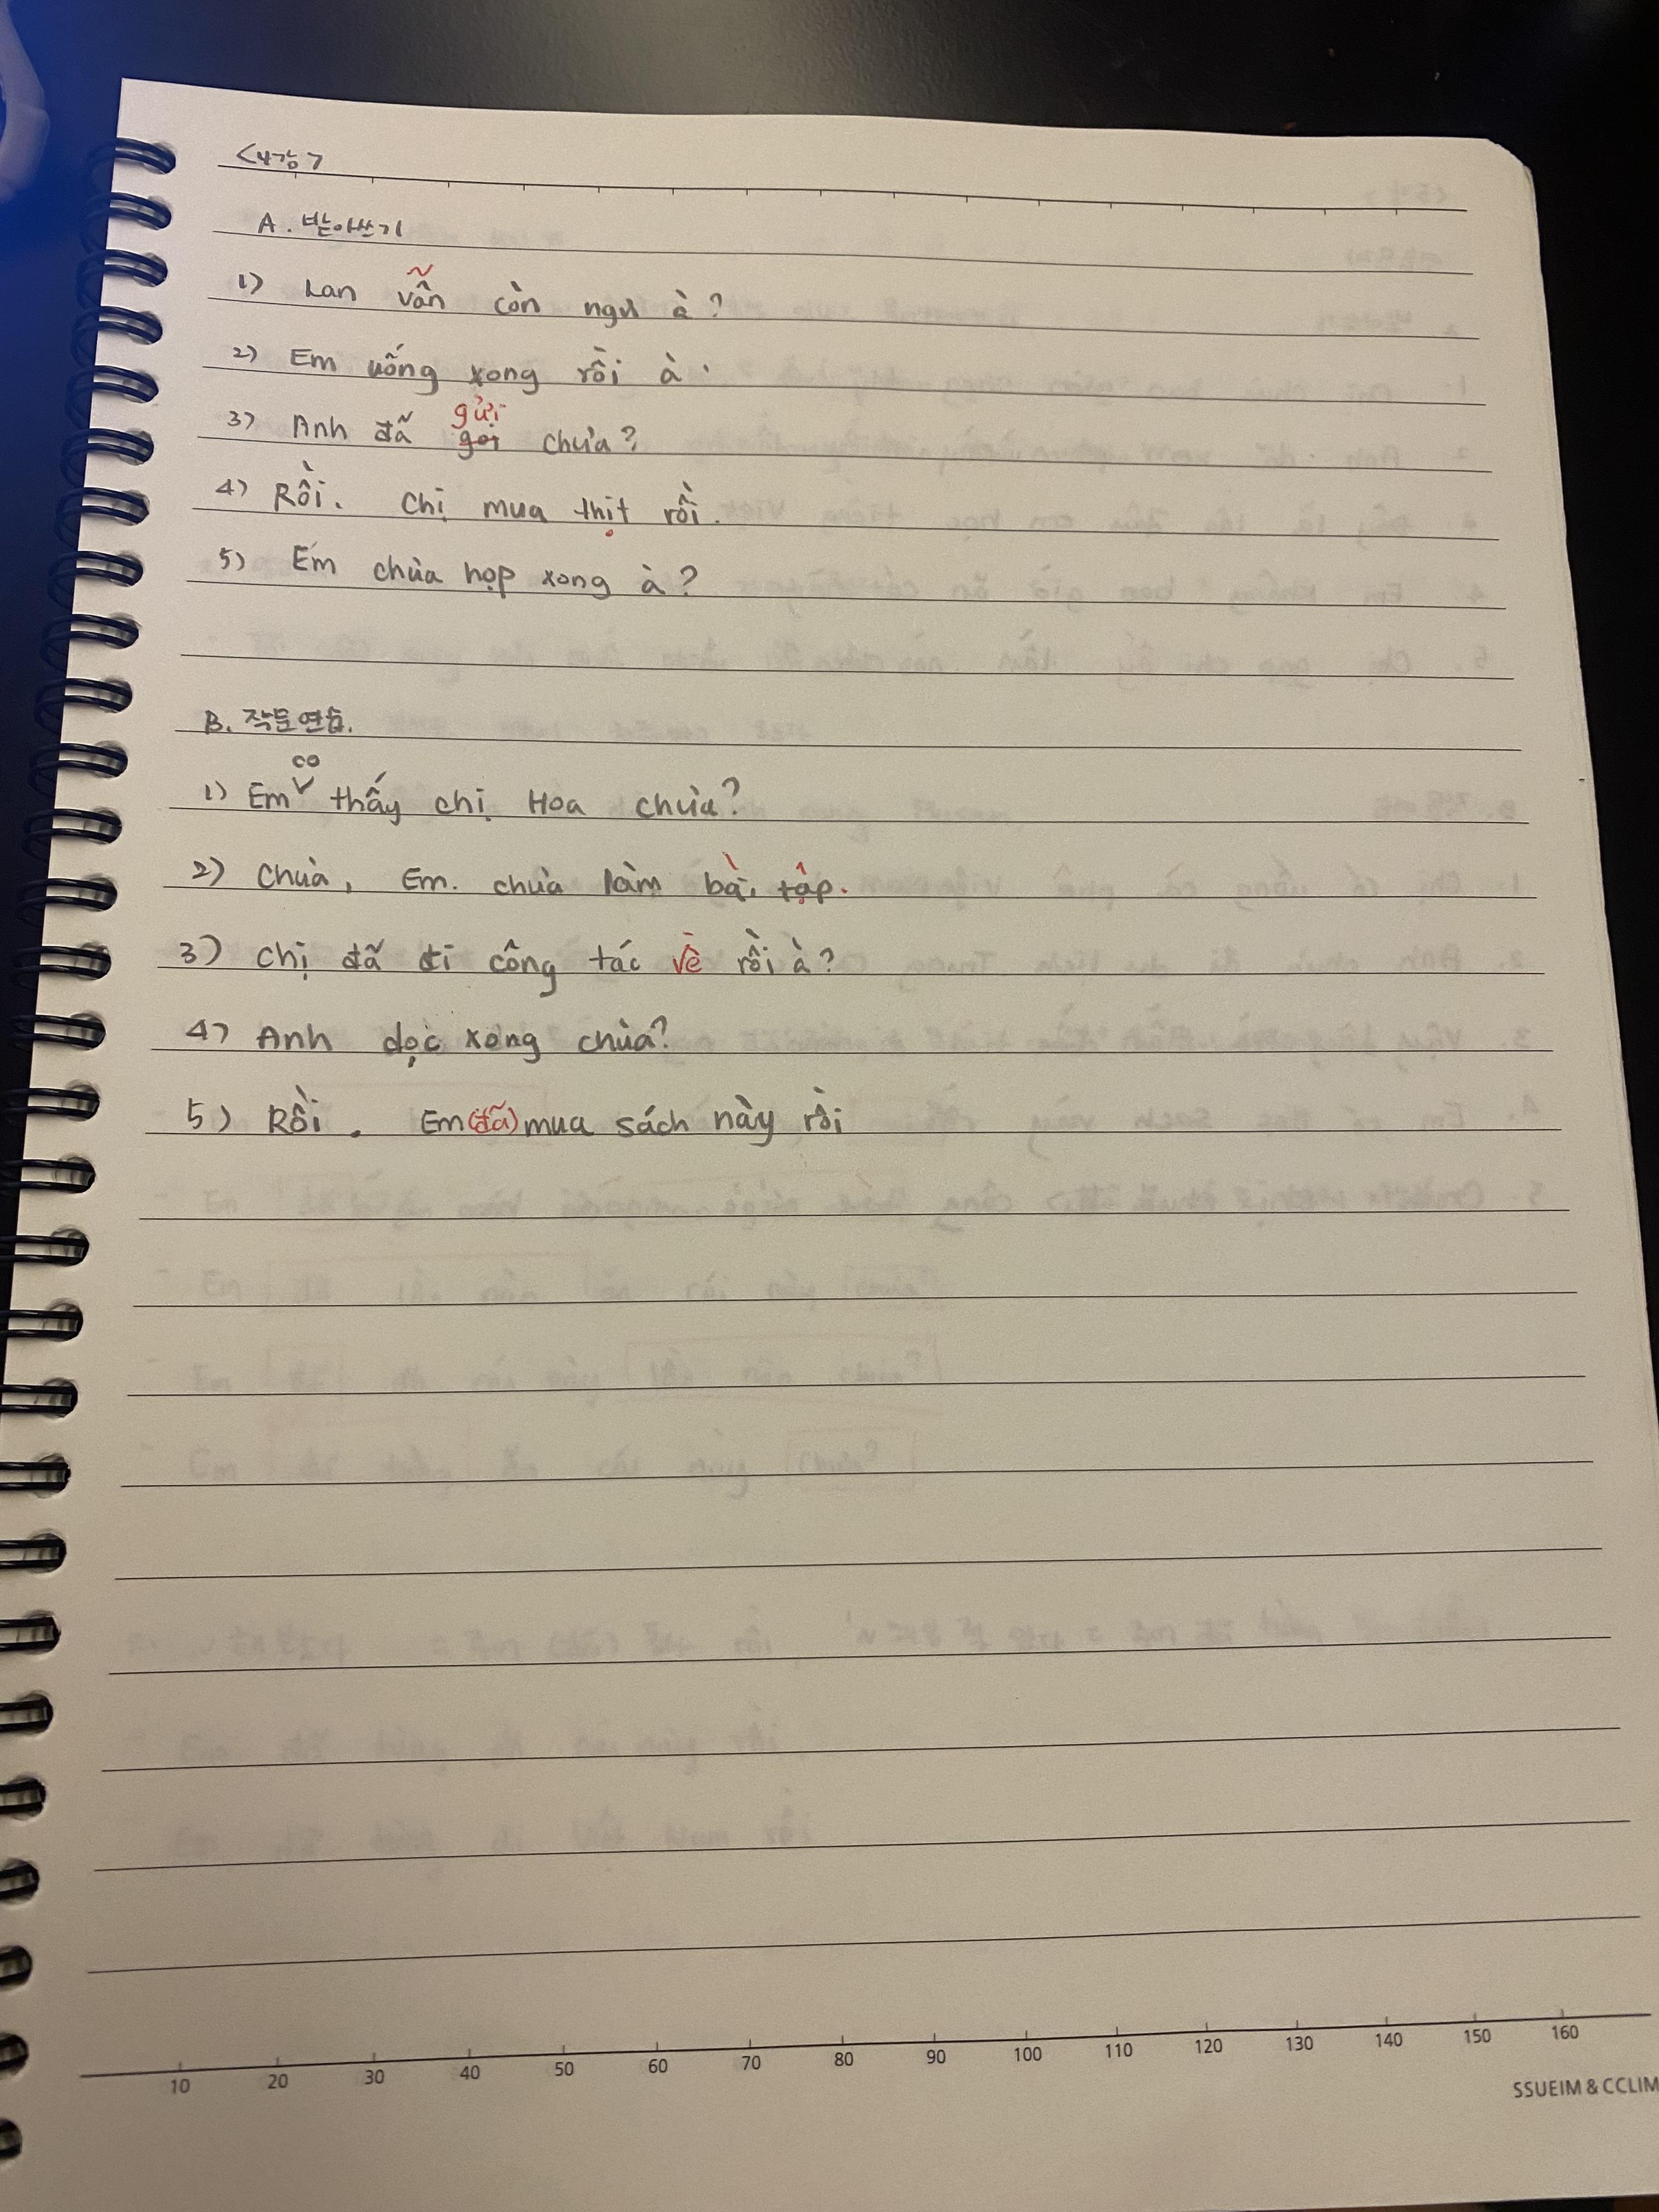 <4강>
A. 받아쓰기
1) Lan vẫn còn ngư à?
2) Em uống xong rồi à.
gửi
3) Anh đã gọi chưa?
4) Rồi. Chị mua thịt rồi.
5) Em chưa họp xong à?
B. 작문연습.
co
1) Em thấy chị Hoa chưa?
2) Chưa, Em. chưa làm bài tập.
3) Chị đã đi công tác về rồi à?
4) Anh đọc xong chưa?
5) Rồi. Em (đã) mua sách này rồi
10 20 30 40 50 60 70 80 90 100 110 120 130 140 150 160
SSUEIM & CCLIM